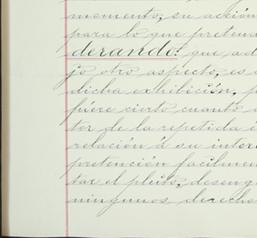 momento, su acción
para lo que pretend
derando: que ad
jo otro aspecto, es
dicha exhibición,
fuere cierto cuanto
tor de la repetida
relación á su inter
pretención facilmen
tar el pleito, deseng
ningunos derecho